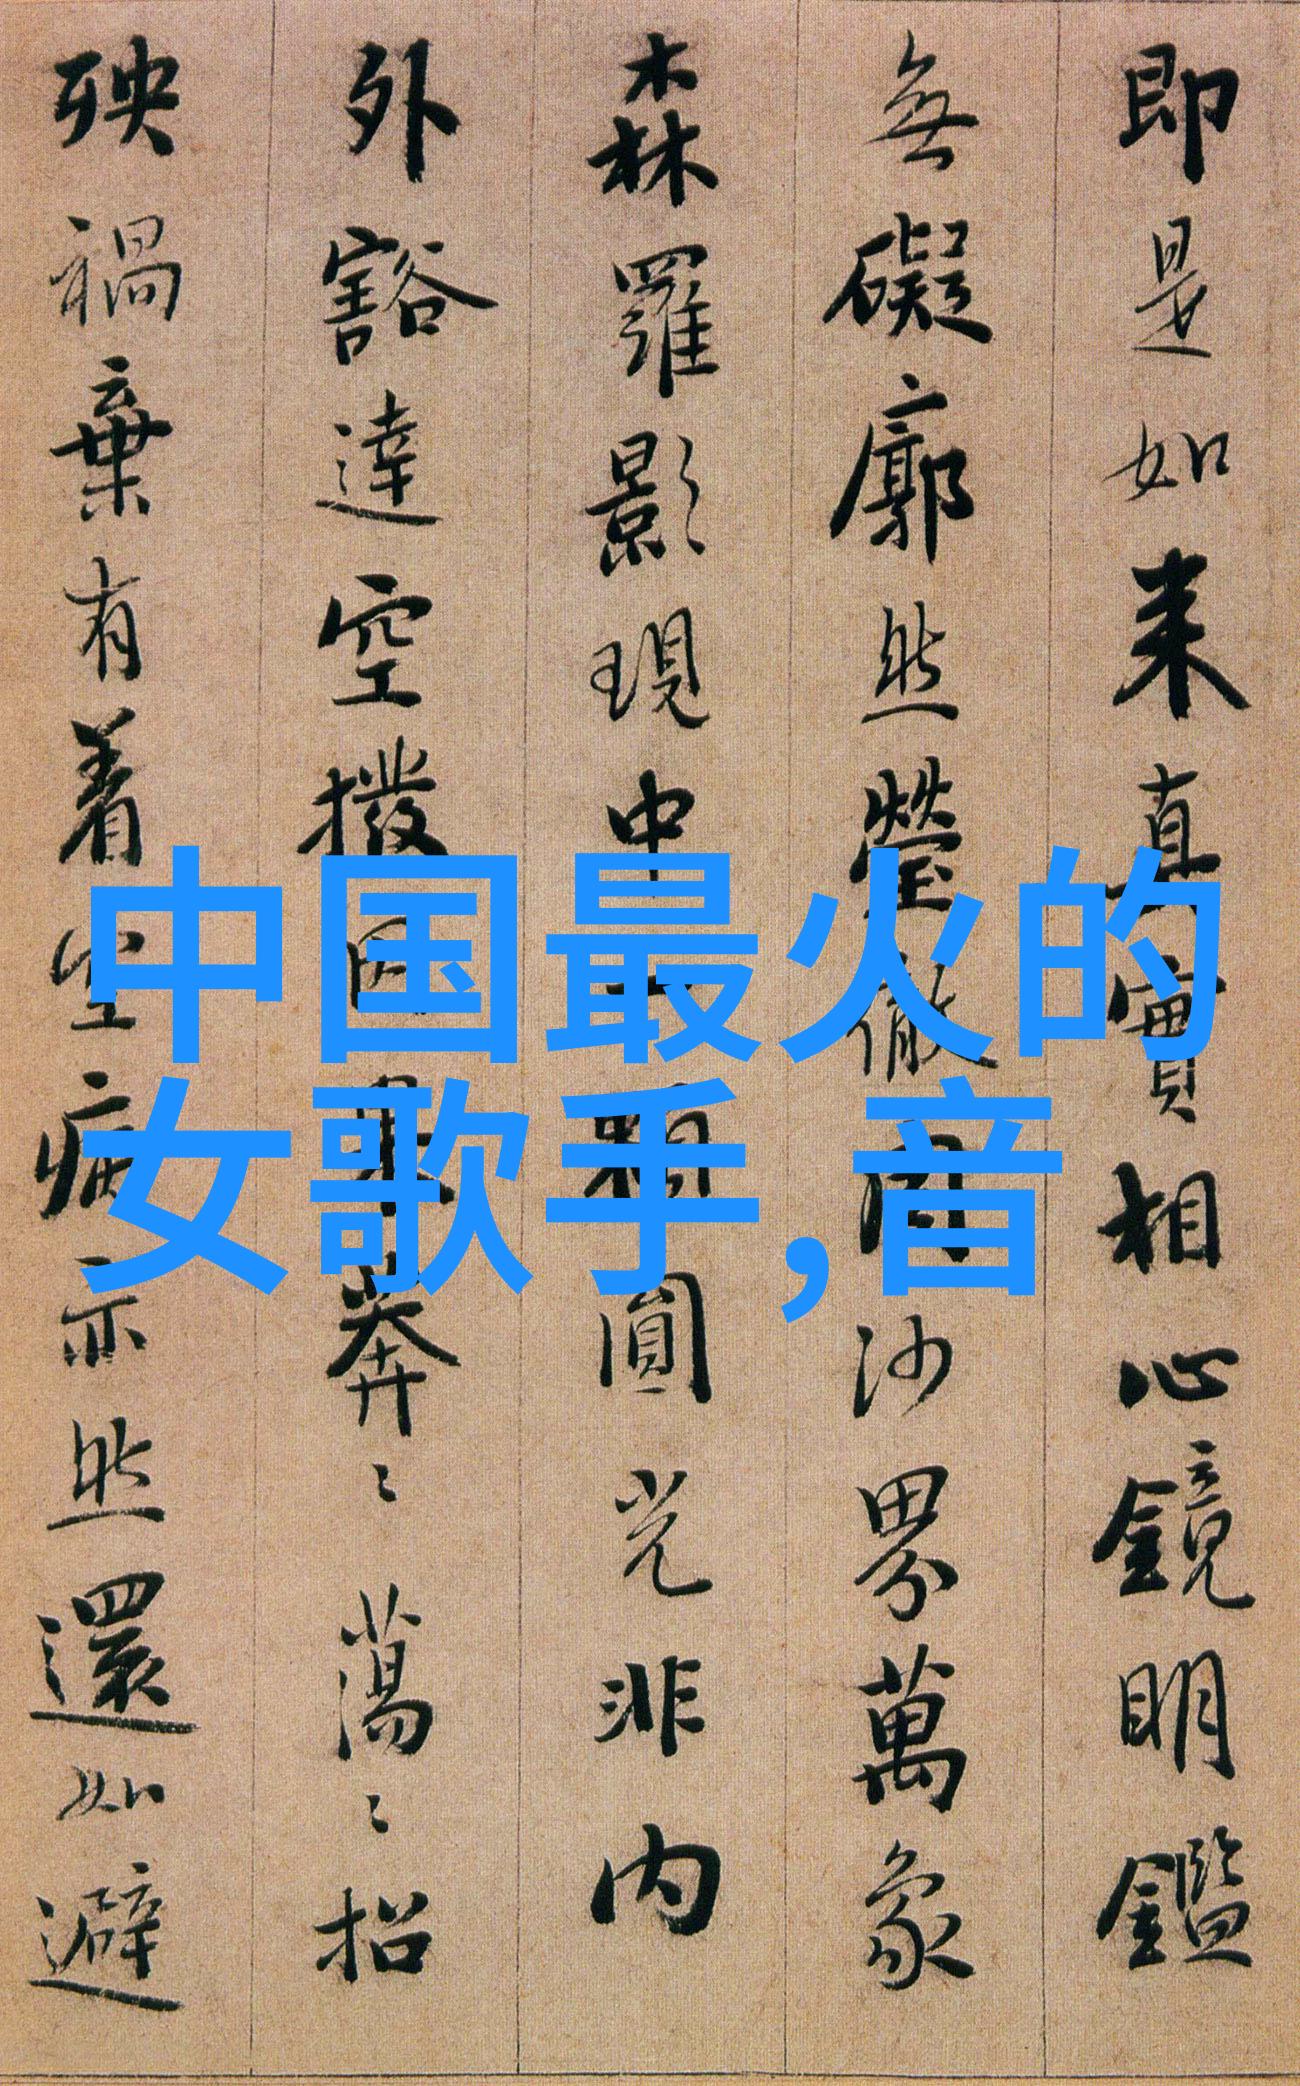 即是如来真實相心鏡明鑑
無礙廓然瑩徹周沙界萬象
森羅影現中一顆圓光非内
外豁達空撥因果莽〻蕩〻招
殃禍棄有着空病亦然還如避
中国最火的
女歌手,音